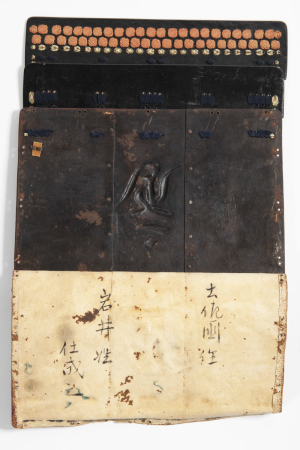 土佐國住
岩井姓
仕成之